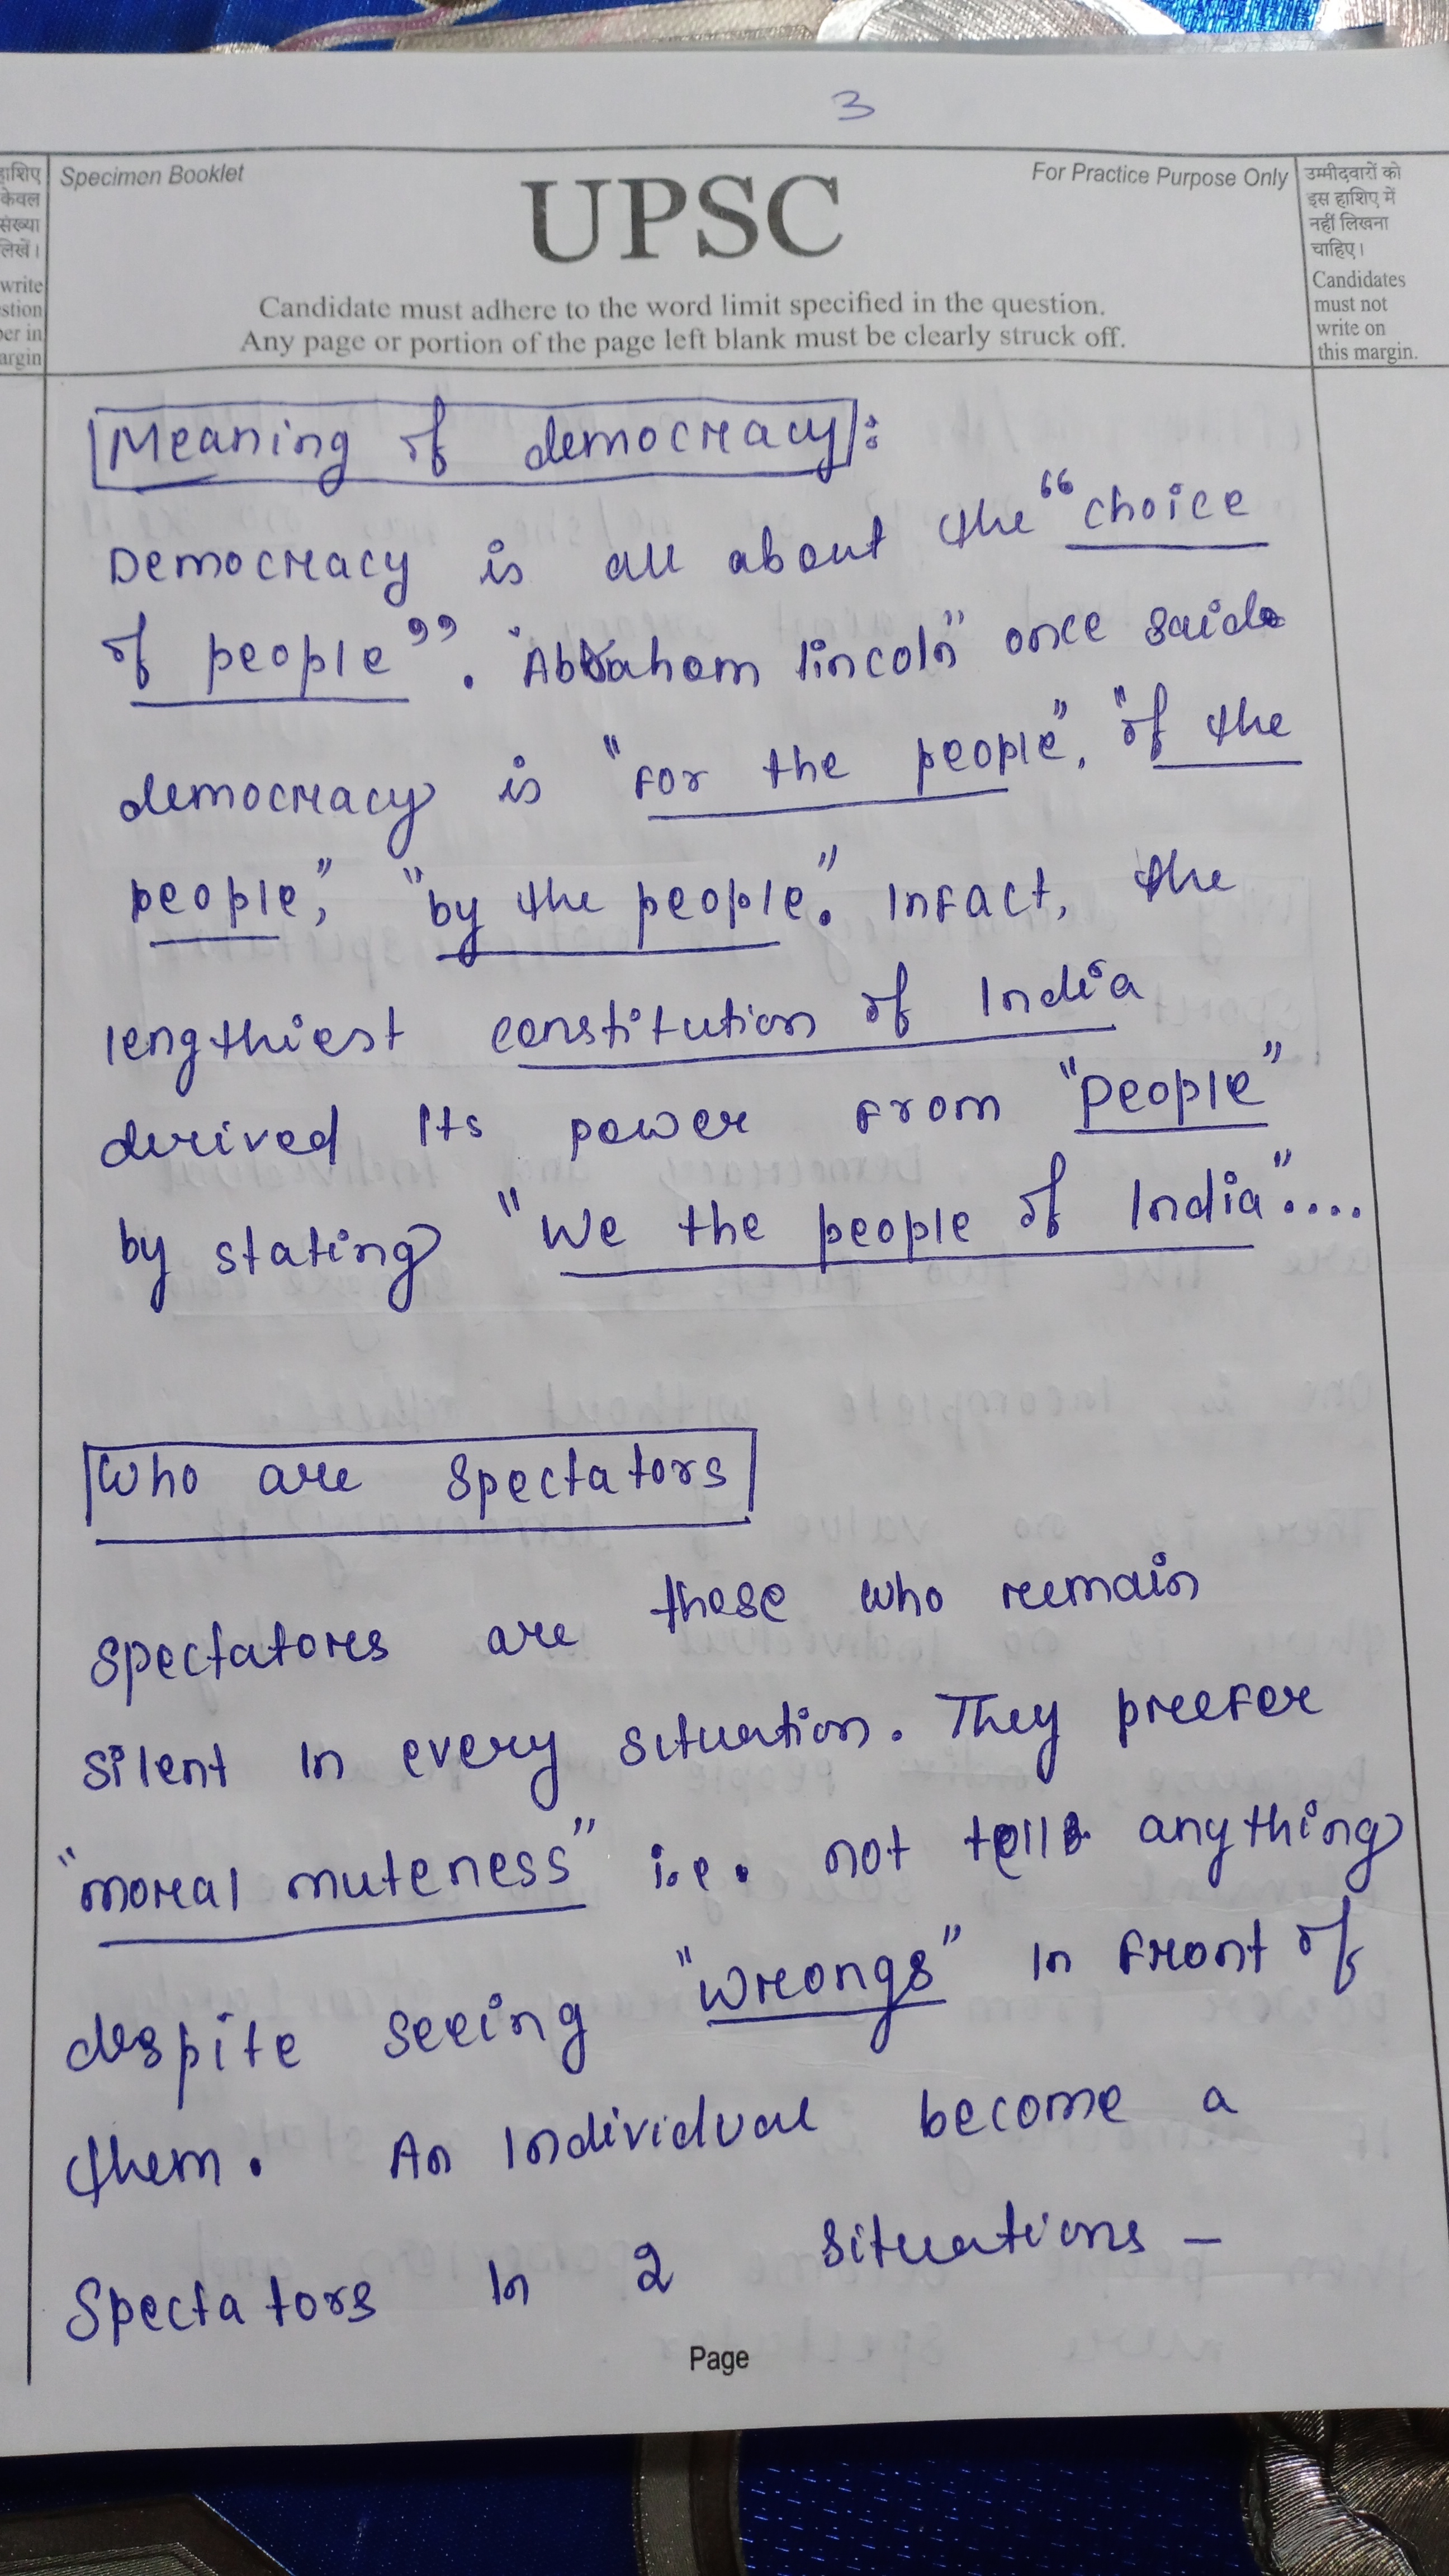 3
हाशिए
केवल
संख्या
लिखें।
write
stion
er in
argin
Specimen Booklet
UPSC
For Practice Purpose Only
उम्मीदवारों को
इस हाशिए में
नहीं लिखना
चाहिए।
Candidates
must not
write on
this margin.
Candidate must adhere to the word limit specified in the question.
Any page or portion of the page left blank must be clearly struck off.
Meaning of democracy:
Democracy is all about the "choice
of people". "Abraham lincoln" once said
democracy is "for the people", "of the
people", "by the people". Infact, the
lengthiest constitution of India
derived Its power from "people"
by stating "We the people of India"....
Who are Spectators
Spectators are those who remain
silent in every situation. They preefer
"moral muteness" i.e. not tell anything
despite seeing "wrongs" in front of
them. An individual become a
Spectators in 2 situations -
Page